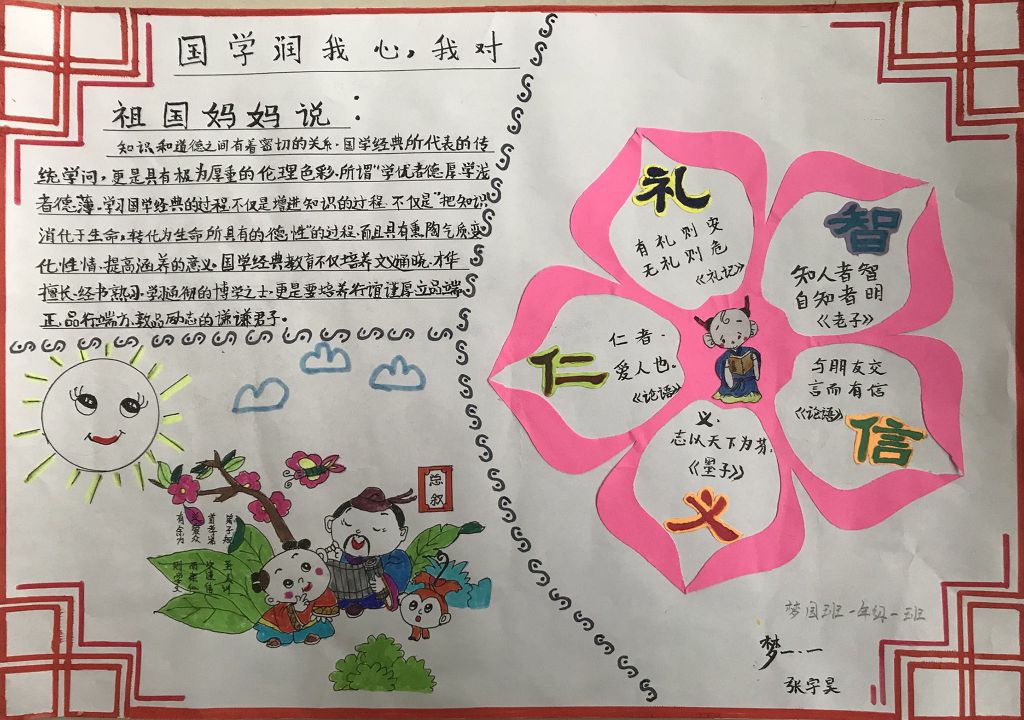 国学润我心,我对
祖国妈妈说:
知识和道德之间有着密切的关系.国学经典所代表的传
统学问,更是具有极为厚重的伦理色彩.所谓"学优者德厚,学浅
者德薄.学习国学经典的过程,不仅是增进知识的过程.不仅是"把知识
消化于生命,转化为生命所具有的德性"的过程.而且具有熏陶气质,变
化性情,提高涵养的意义.国学经典教育不仅培养文义通晓,才华
擅长.经书熟,小学通彻的博学之士,更是要培养行谊谨厚,立品端
正、品行端方,敦品励志的谦谦君子。
总叙
弟子规 圣人训
首孝弟 次谨信
泛爱众 而亲仁
有余力 则学文
礼
有礼则安
无礼则危
《礼记》
智
知人者智
自知者明
《老子》
仁
仁者.
爱人也.
《论语》
与朋友交
言而有信
《论语》
信
义.
志以天下为芬.
《墨子》
义
梦园班一年级一班
梦一.一
张宇昊